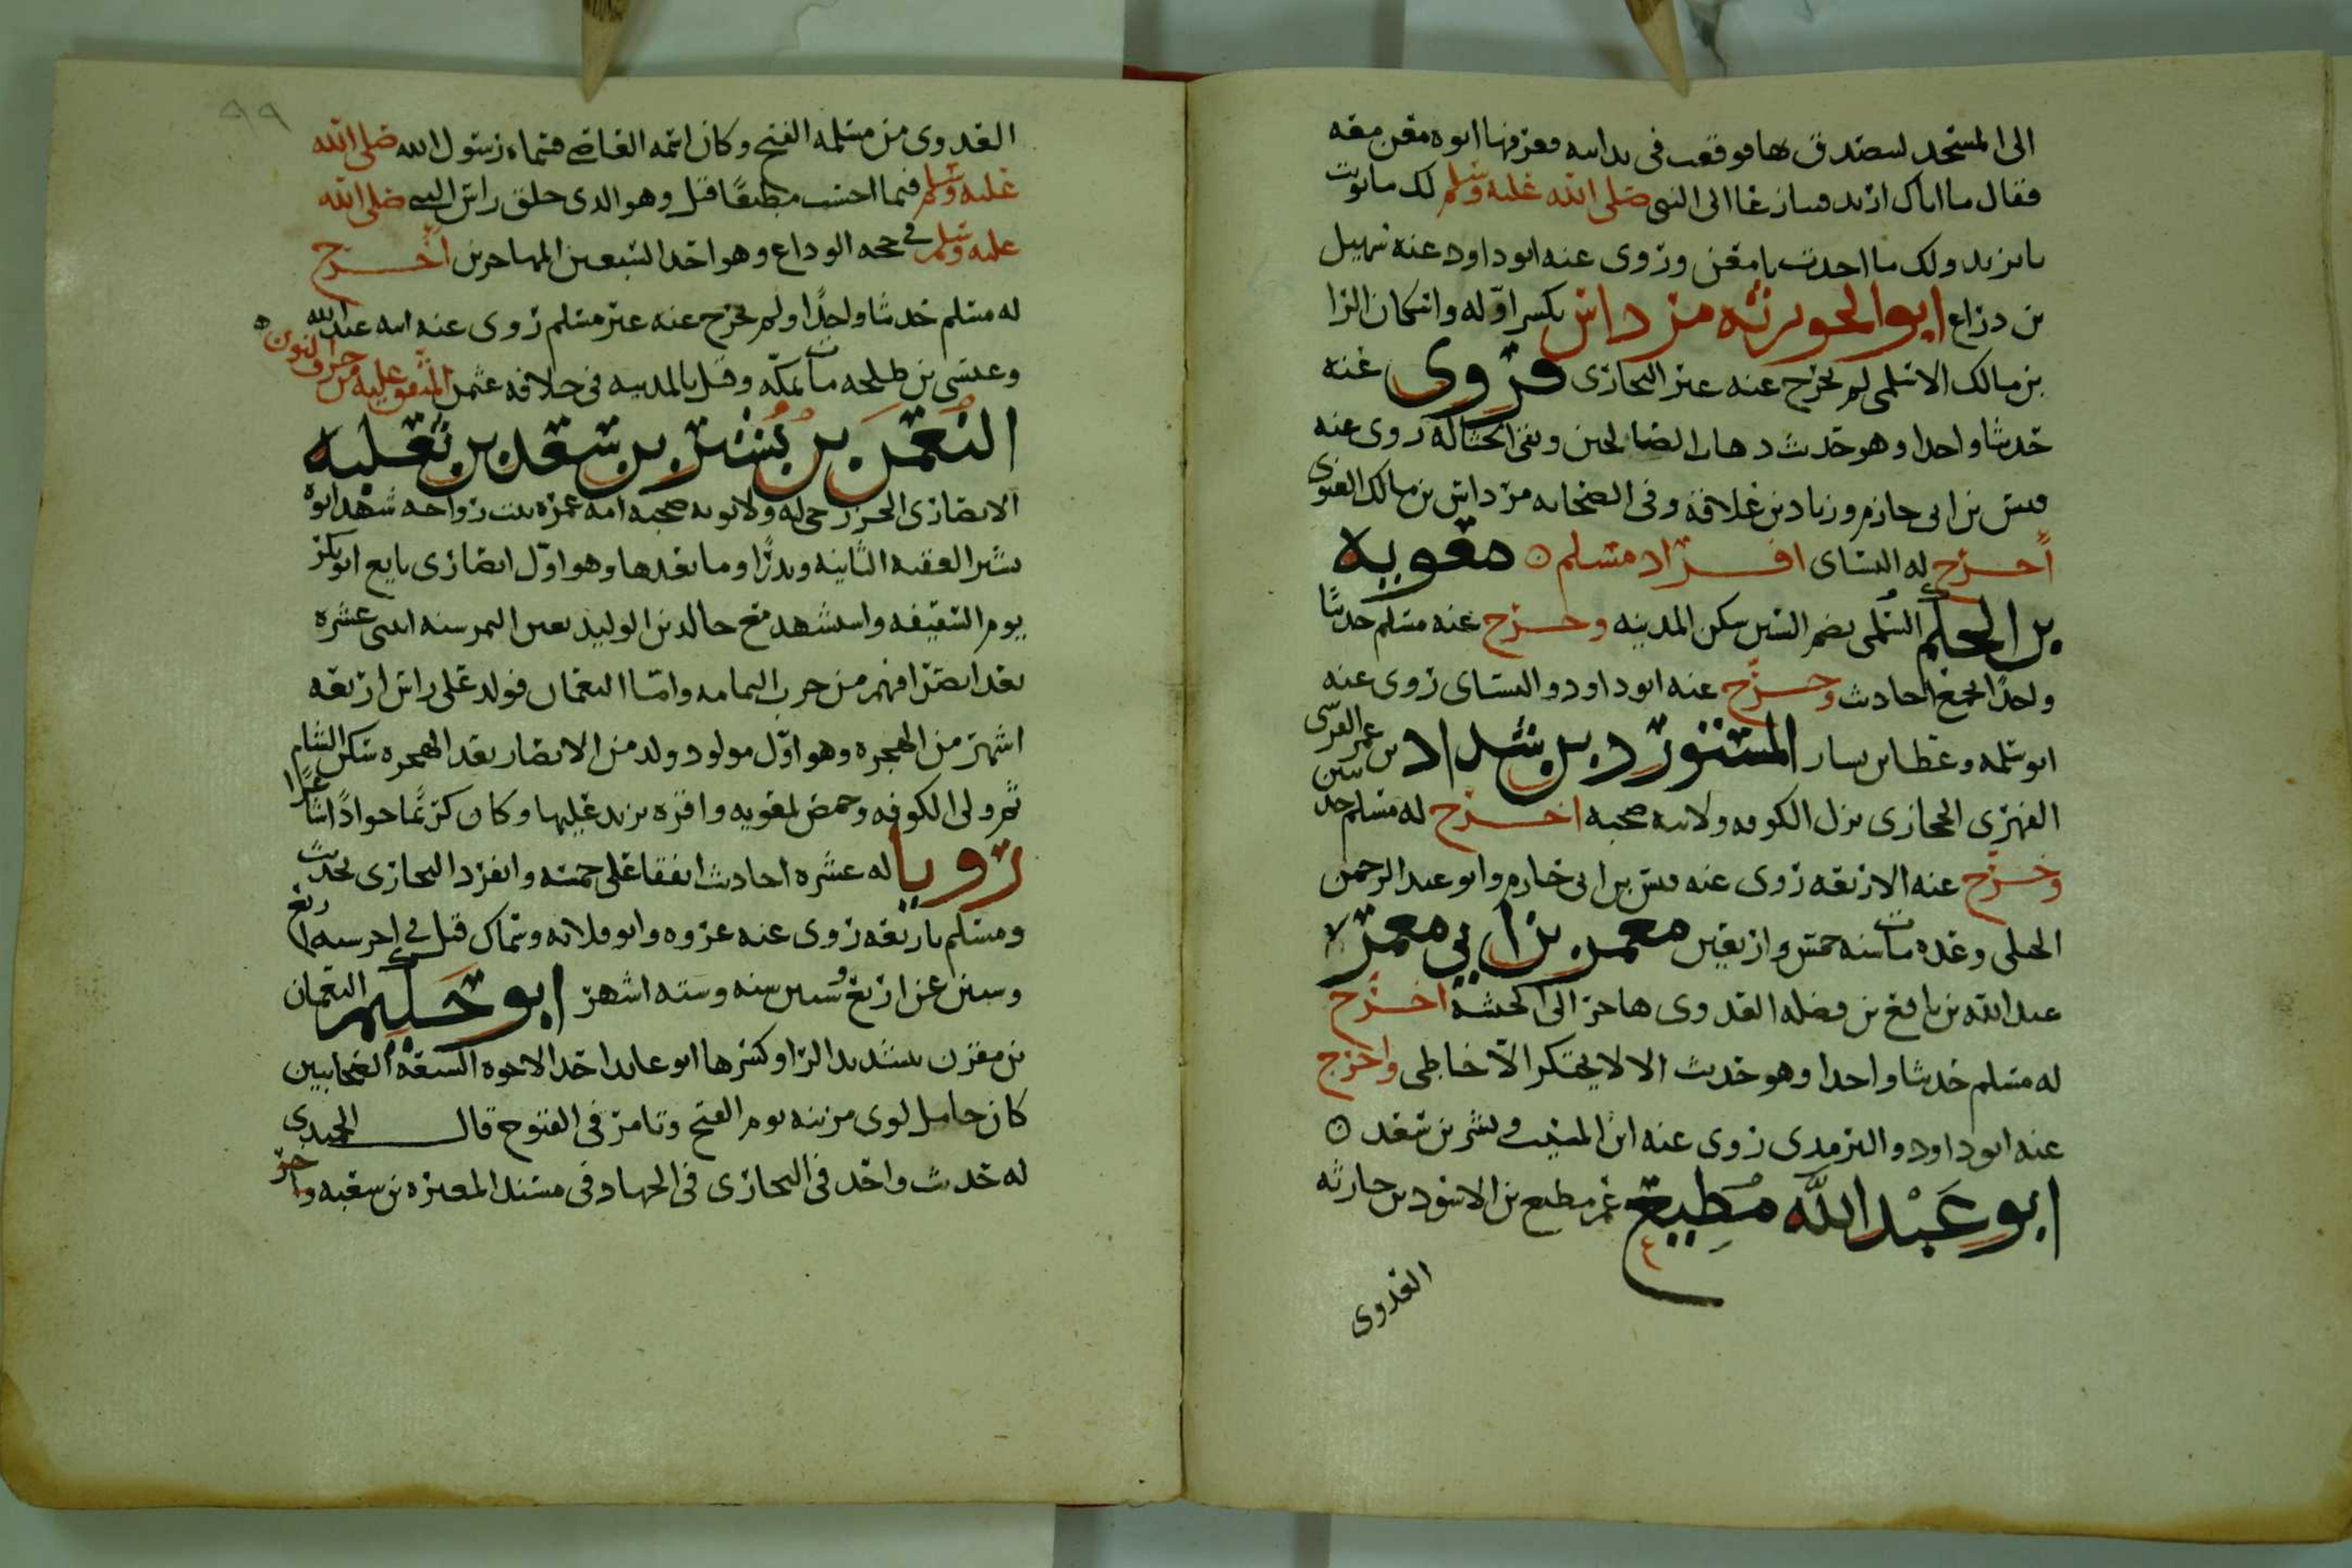 الى المسجد ليصدق بها فوقعت في يد ابنه معن فها ابوه معن معه
فقال ما اياك اريد فسارعا الى النبي صلى الله عليه وسلم لك ما نويت
يا يزيد ولك ما اخذت يا معن وروى عنه ابو داود عنه سهيل
بن دراع ابو الحويرثه مرداس بكسر اوله واسكان الرا
بن مالك الاسلمي لم يخرج عنه غير البخاري فروى عنه
حديثا واحدا وهو حديث دهاب الصالحين وتبقى الحثاله روى عنه
قيس بن ابي حازم وزياد بن علاقة وفي الصحابه مرداس بن مالك الغنوي
أخرج له النسائى افراد مسلم ه معويه
بن الحكم السلمى بضم السين سكن المدينه وخرج عنه مسلم حديثا
واحدا لجمع احاديث وخرج عنه ابو داود والنسائى روى عنه
ابو سلمه وعطا بن يسار المستورد بن شداد بن عمر القرشى
الفهرى الحجازى نزل الكوفه ولابيه صحبه اخرج له مسلم حديثين
وخرج عنه الاربعه روى عنه قيس بن ابى حازم وابو عبد الرحمن
الحبلى وغده مات سنه خمس واربعين معمر بن ابي معمر
عبد الله بن نافع بن فضله العدوى هاجر الى الحبشة اخرج
له مسلم حديثا واحدا وهو حديث الا لا يحتكر الا خاطى واخرج
عنه ابو داود والترمدى روى عنه ابن المسيب وبشر بن سعد ه
ابو عَبْد الله مُطِيع عم مطيع بن الاسود بن حارثه
العدوى
٩٩
العدوى من مسلمه الفتح وكان اسمه العاصى فسماه رسول الله صلى الله
عليه وسلم فيما احسب مطيعًا قيل وهو الدى حلق راس النبى صلى الله
عليه وسلم في حجه الوداع وهو احد السبعين المهاجرين أخرج
له مسلم حديثا واحدًا ولم يخرج عنه غير مسلم روى عنه ابنه عبد الله
وعيسى بن طلحه مات بمكّه وقيل بالمدينه فى خلافه عثمن المتفق عليه من حرف النون ه
النعمن بن بُشير بن سعد بن ثعلبه
الانصارى الخزرجى له ولابويه صحبه امه عمره بنت رواحه شهد ابوه
بشير العقبه الثانيه وبدرًا وما بعدها وهو اوّل انصارى بايع ابو بكر
يوم السقيفه واستشهد مع خالد بن الوليد بعين التمر سنه اثنى عشره
بعد انصرافهم من حرب اليمامه وامّا النعمان فولد على راس اربعه
اشهر من الهجره وهو اوّل مولود ولد من الانصار بعد الهجره سكن الشام
ثم ولى الكوفه وحمص لمعويه واقره يزيد عليها وكان كريمًا جوادًا شاعرًا
رويا له عشره احاديث اتفقا على خمسه وانفرد البخارى بحديث
ومسلم باربعه روى عنه عروه وابو قلابه وسماك قتل في اخر سنه اربع
وستين عن اربع وستين سنه وستّه اشهر ابو حكيم النعمان
بن مقرن بتشديد الرا وكسرها ابو عايد احد الاخوه السبعه الصحابيين
كان حامل لوى مزينه يوم الفتح وتامر فى الفتوح قال الحميدى
له حديث واحد فى البخارى فى الجهاد فى مسند المغيره بن شعبه واخر